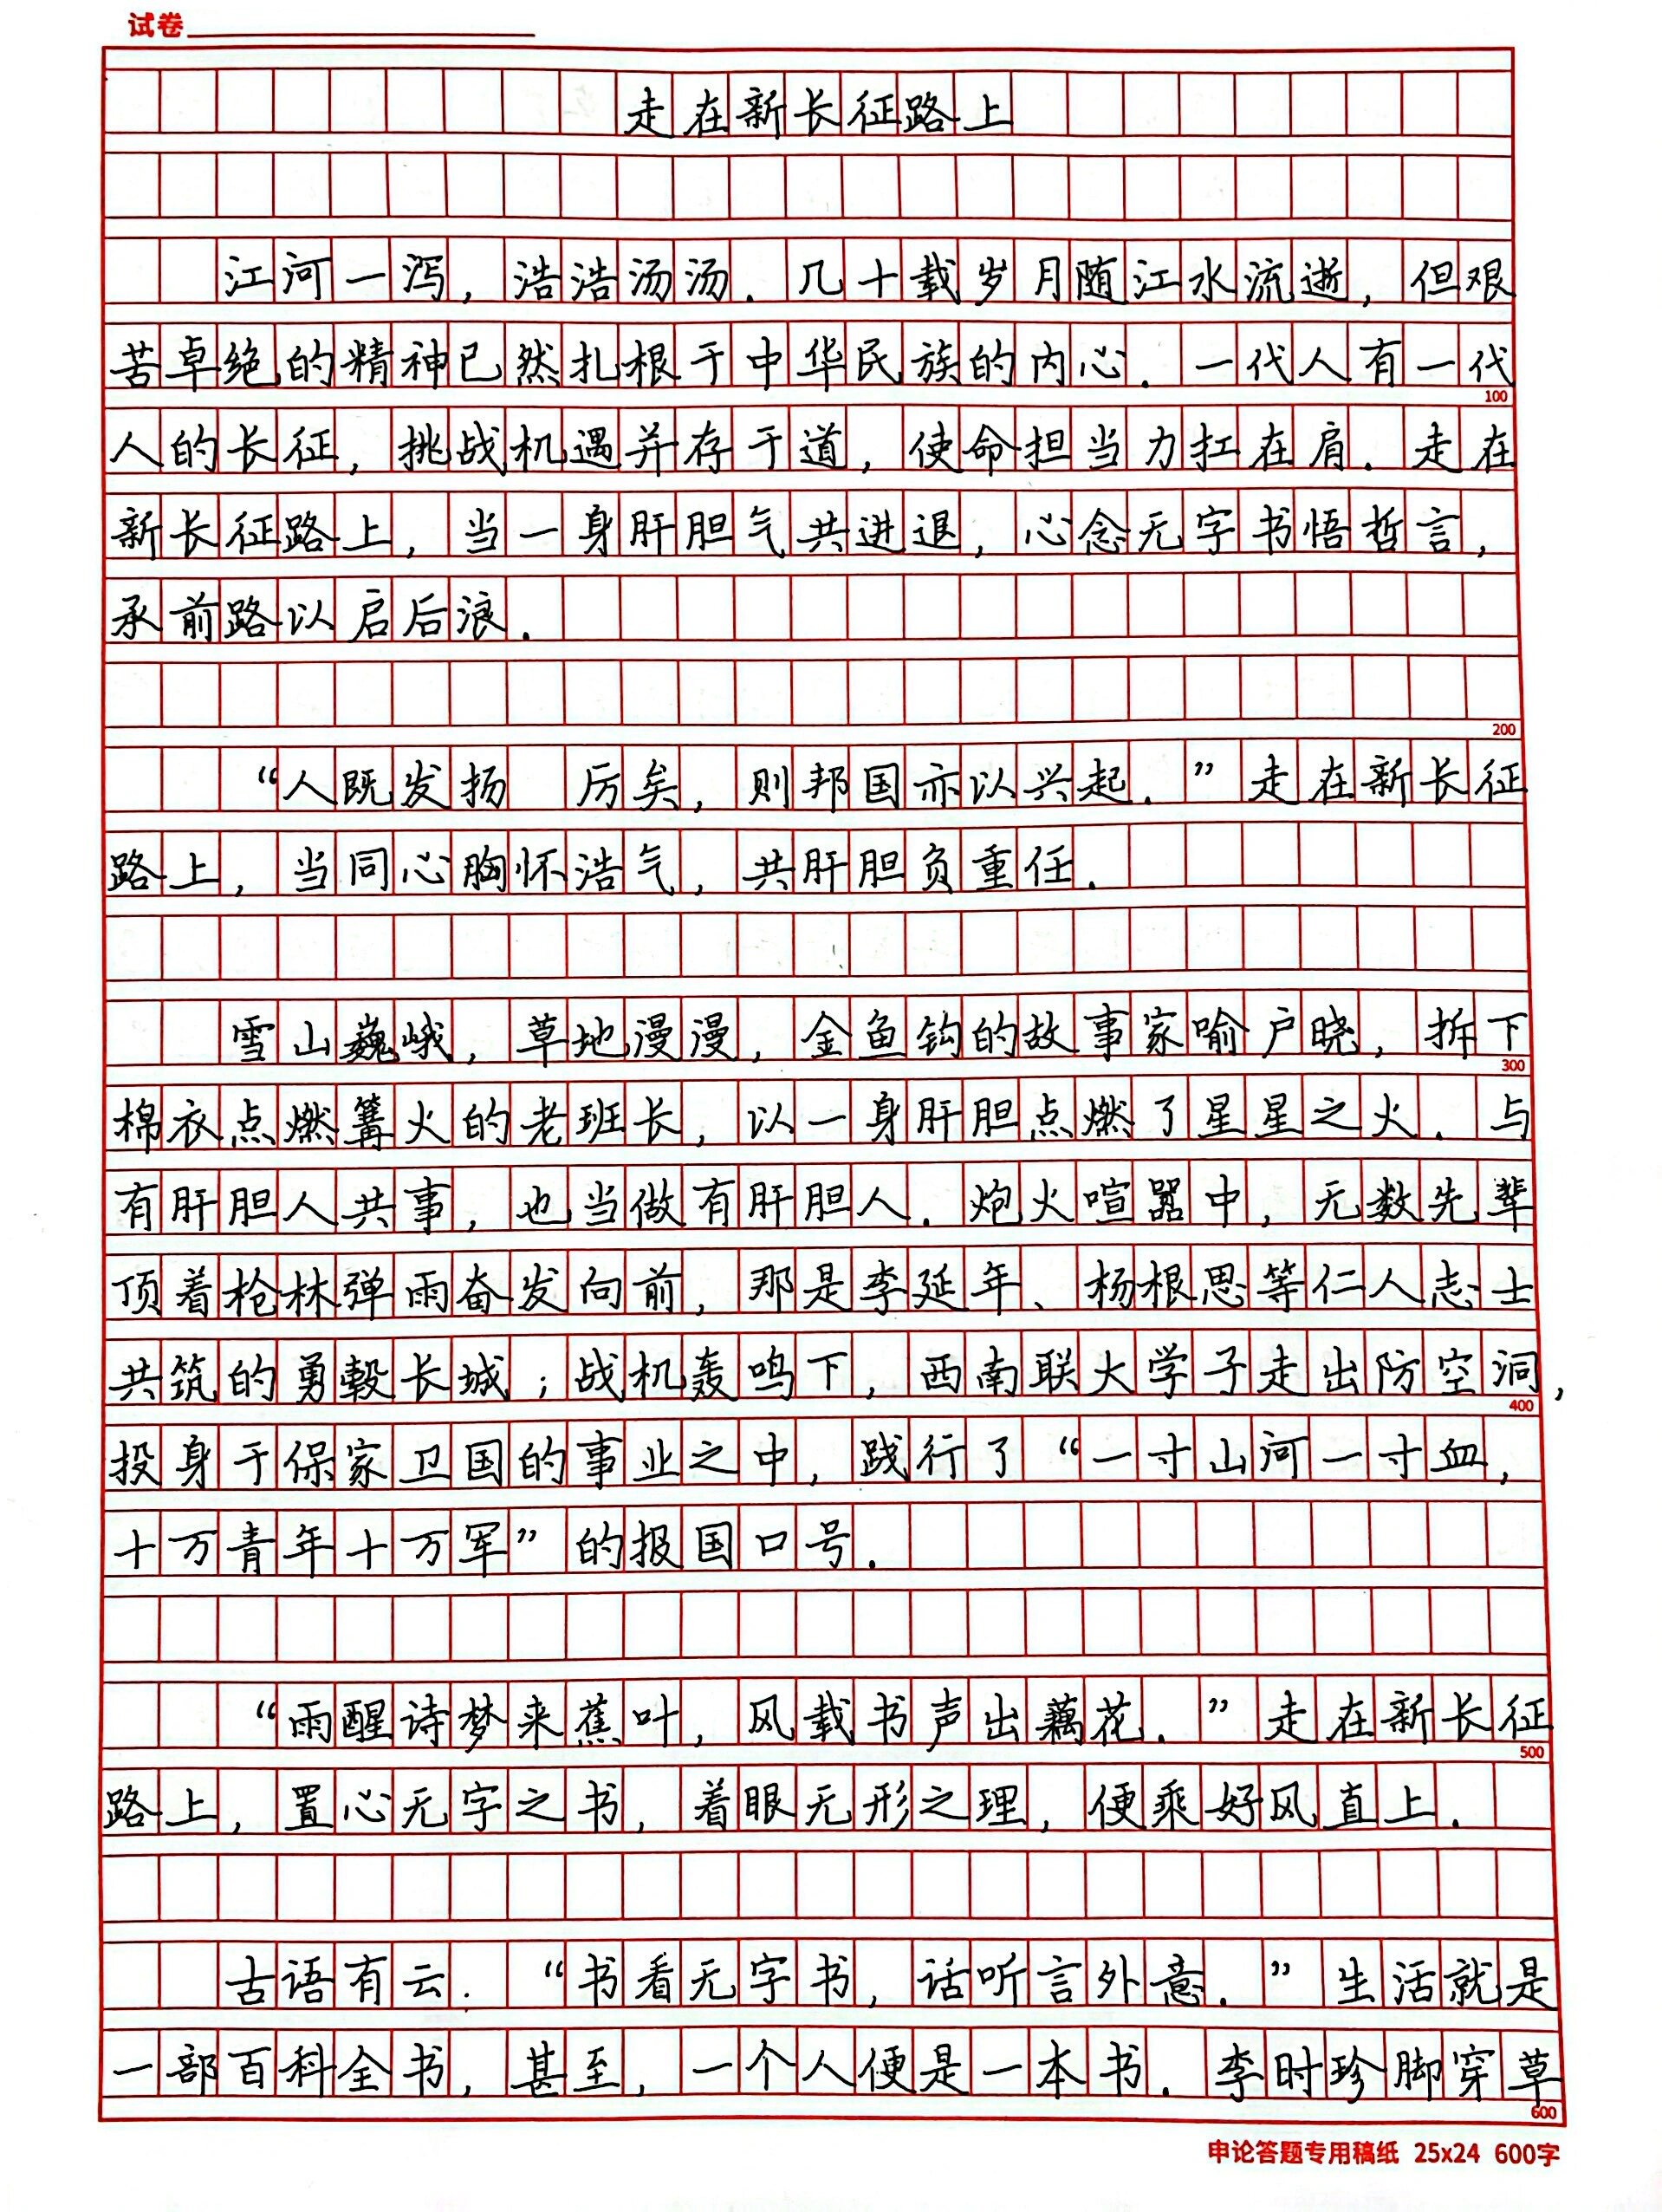 试卷
走在新长征路上
江河一泻，浩浩汤汤．几十载岁月随江水流逝，但艰
苦卓绝的精神已然扎根于中华民族的内心．一代人有一代
100
人的长征，挑战机遇并存于道，使命担当力扛在肩．走在
新长征路上，当一身肝胆气共进退，心念无字书悟哲言，
承前路以启后浪．
200
“人既发扬 厉矣，则邦国亦以兴起．”走在新长征
路上，当同心胸怀浩气，共肝胆负重任．
雪山巍峨，草地漫漫，金鱼钩的故事家喻户晓，拆下
300
棉衣点燃篝火的老班长，以一身肝胆点燃了星星之火．与
有肝胆人共事，也当做有肝胆人．炮火喧嚣中，无数先辈
顶着枪林弹雨奋发向前，那是李延年、杨根思等仁人志士
共筑的勇毅长城；战机轰鸣下，西南联大学子走出防空洞，
400
投身于保家卫国的事业之中，践行了“一寸山河一寸血，
十万青年十万军”的报国口号．
“雨醒诗梦来蕉叶，风载书声出藕花．”走在新长征
500
路上，置心无字之书，着眼无形之理，便乘好风直上．
古语有云．“书看无字书，话听言外意．”生活就是
一部百科全书，甚至，一个人便是一本书．李时珍脚穿草
600
申论答题专用稿纸 25x24 600字